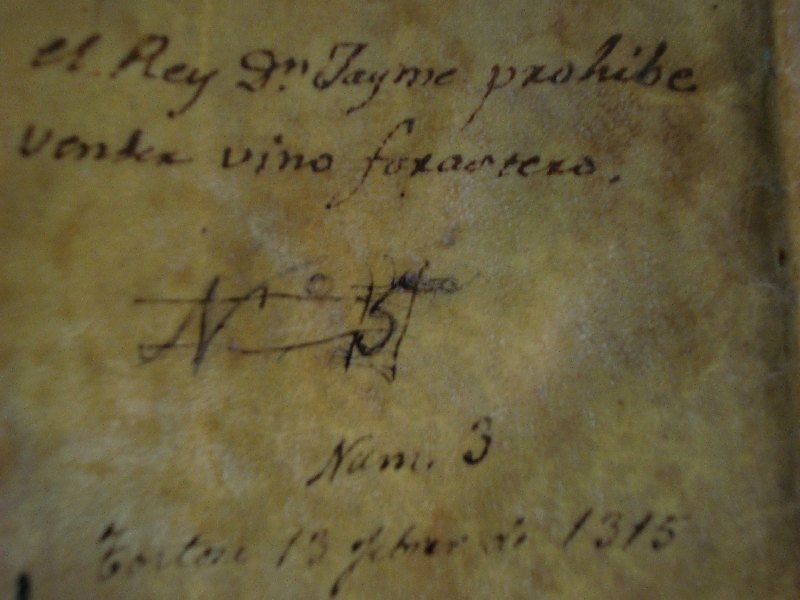 el Rey Dn. Jayme prohibe
vender vino forastero.
No
Num. 3
Tortosa 13 febrer de 1315